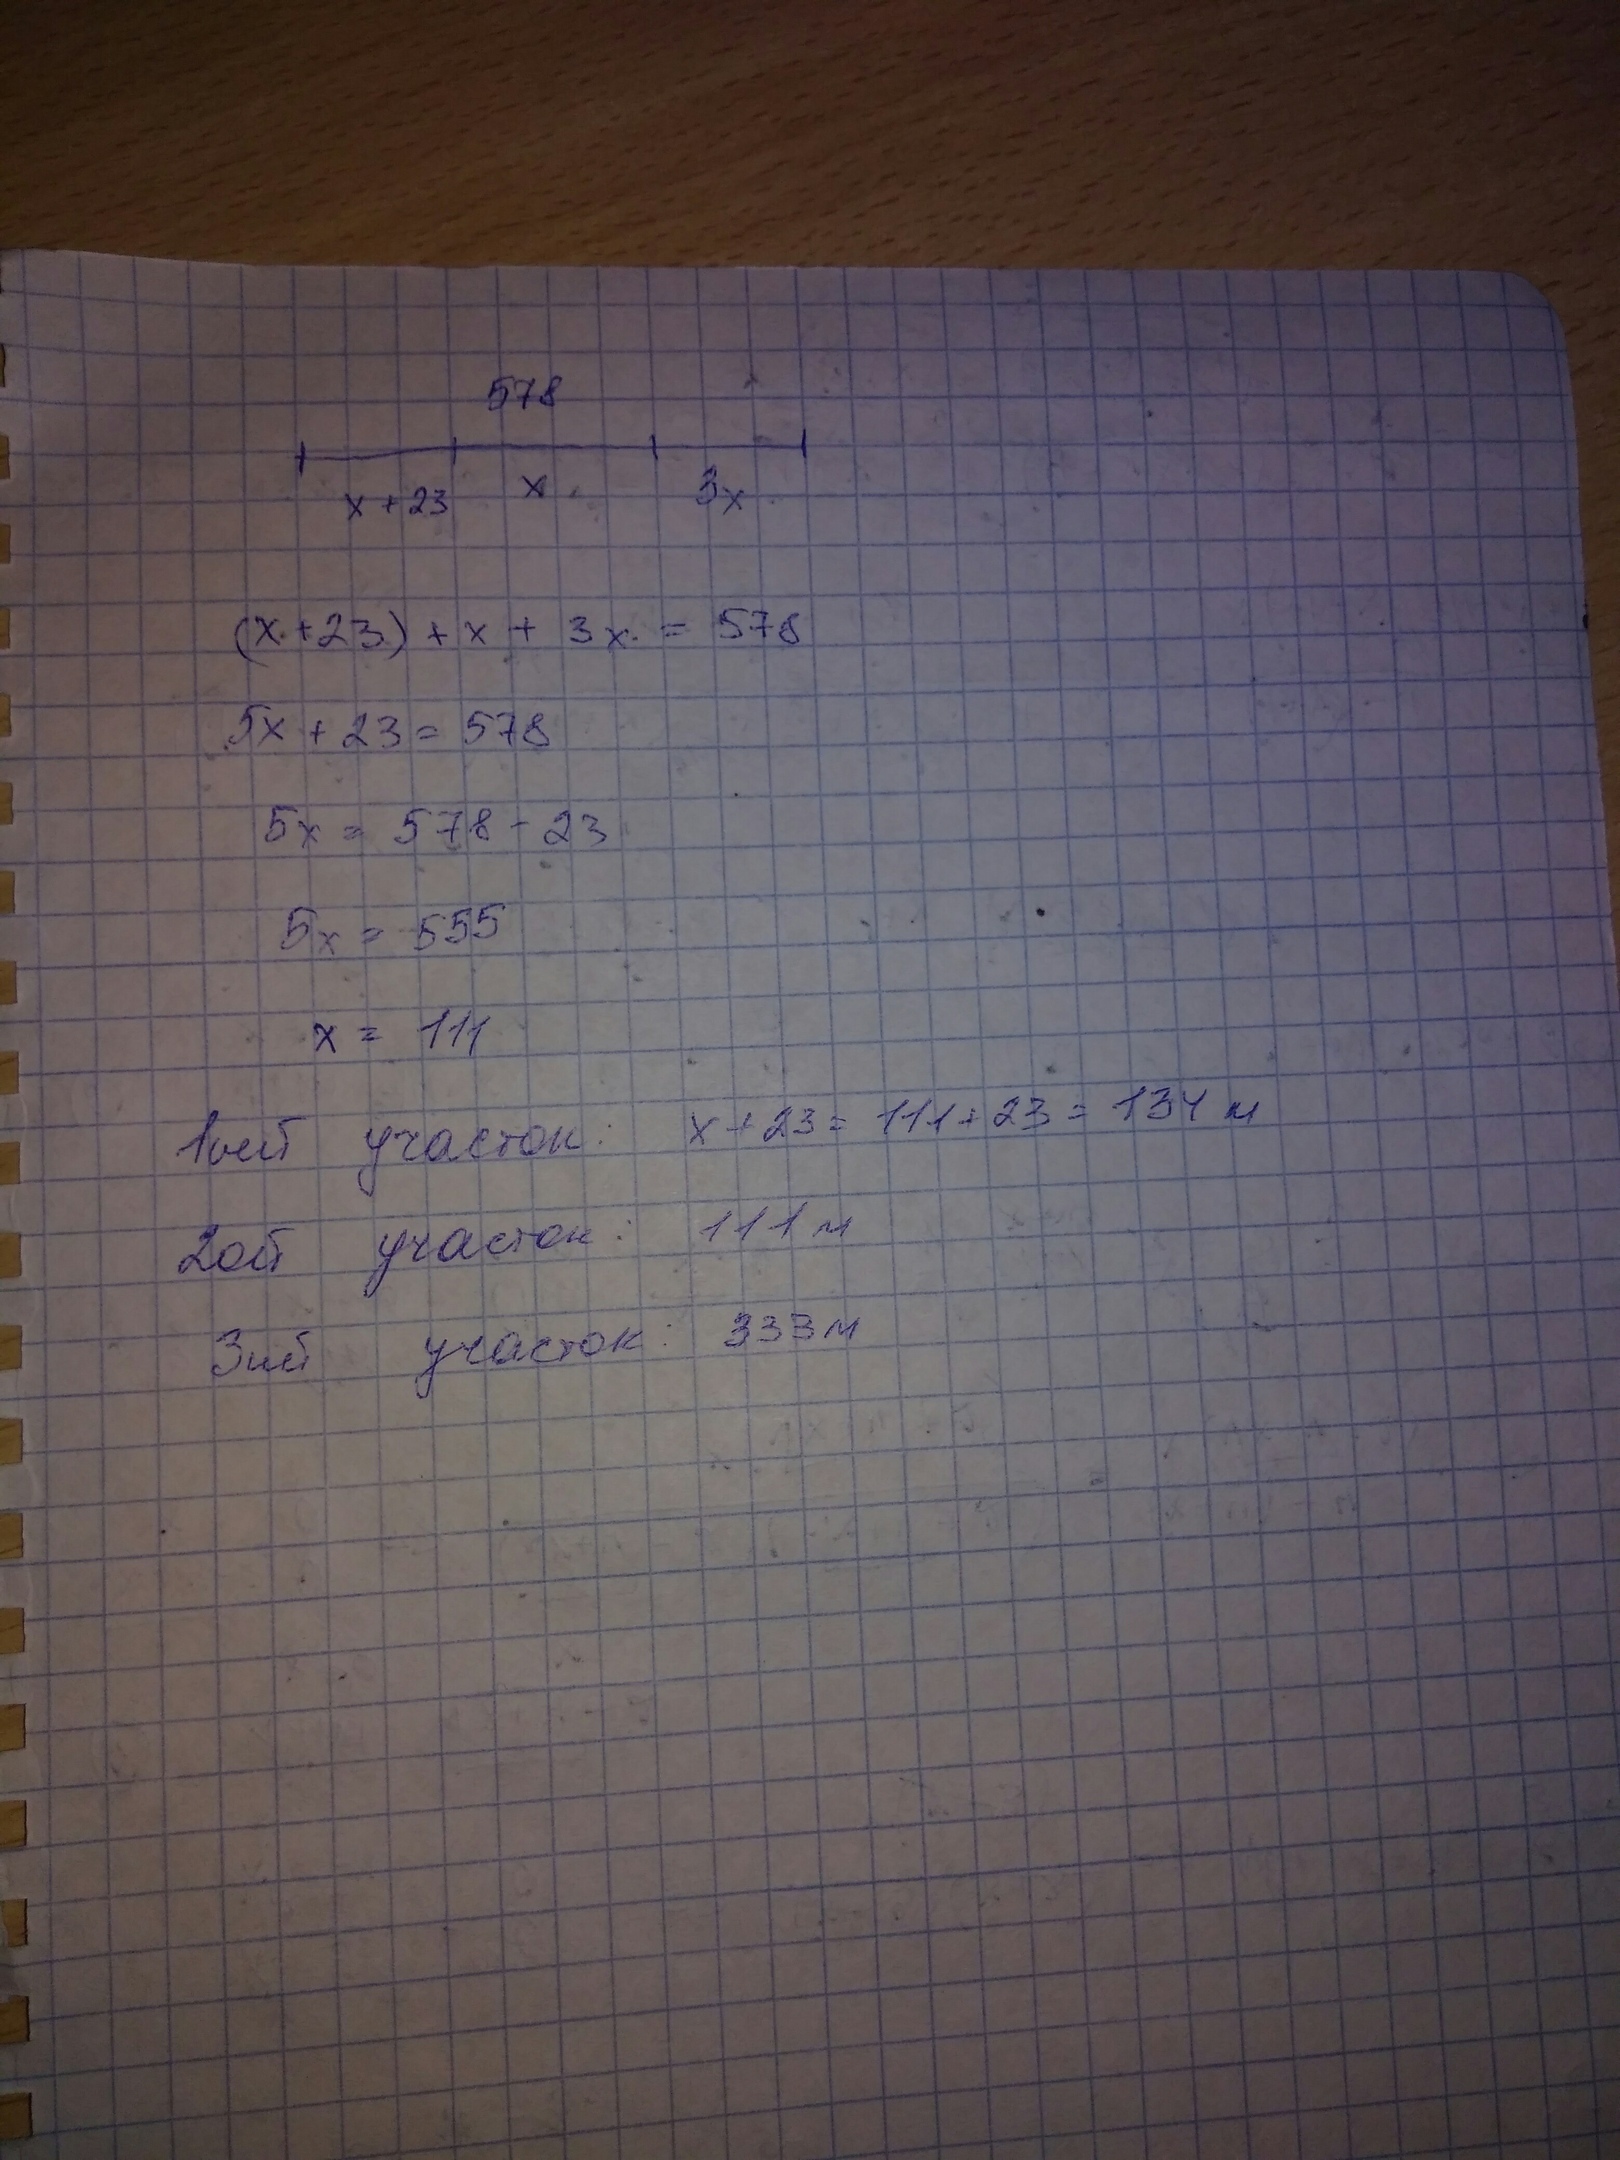 578
x + 23 x 3x
(x + 23) + x + 3x = 578
5x + 23 = 578
5x = 578 - 23
5x = 555
x = 111
1ый участок: x + 23 = 111 + 23 = 134 м
2ой участок: 111 м
3ий участок: 333 м